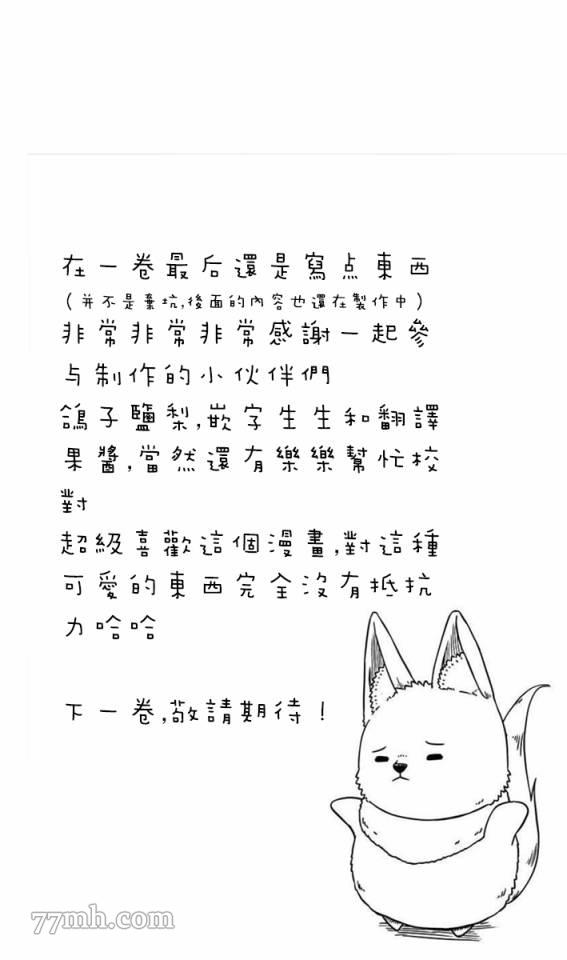 在一卷最后還是寫点東西
(并不是棄坑,後面的內容也還在製作中)
非常非常非常感謝一起參
与制作的小伙伴們
鴿子鹽梨,嵌字生生和翻譯
果醬,當然還有樂樂幫忙校
對
超級喜歡這個漫畫,對這種
可愛的東西完全沒有抵抗
力哈哈
下一卷,敬請期待!
77mh.com